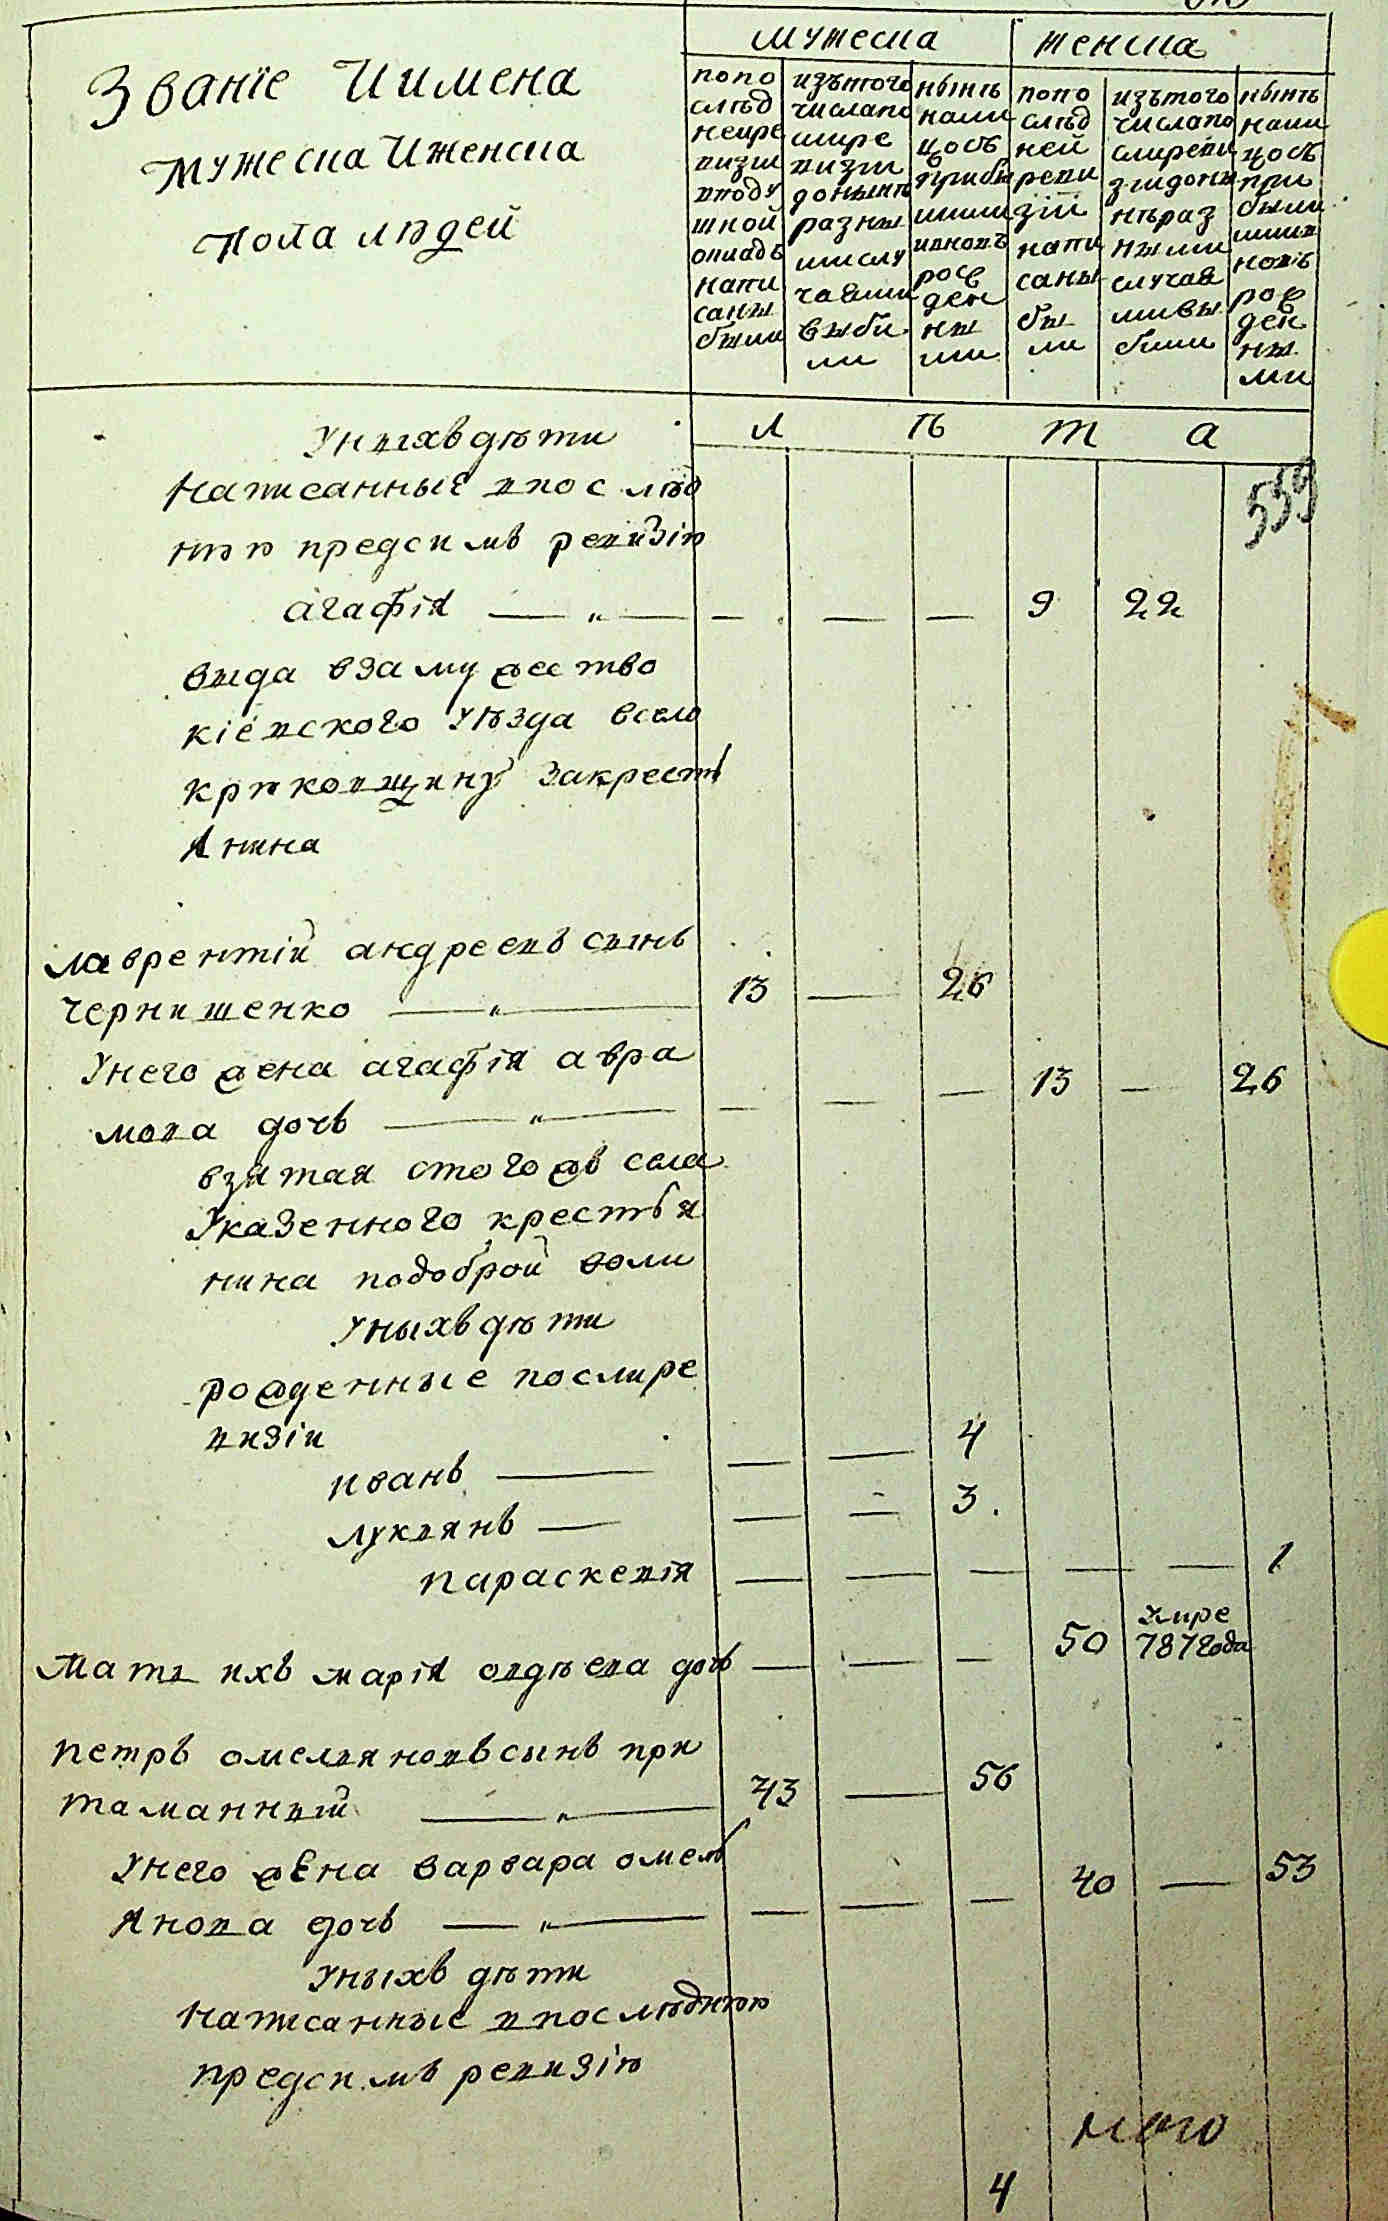 мужеска
женска
Званїе Иимена
мужеска Иженска
Пола людей
попо
слѣд
неире
визіи
вподу
шной
окладъ
напи
саны
были
изътого
числапо
слире
визіи
донынѣ
разны
мислу
чаями
выбы
ли
нынѣ
нали
цосъ
прибы
шими
ивновъ
рож
ден
ны
ми
попо
слѣд
ней
реви
зїи
напи
саны
бы
ли
изътого
числапо
слиреви
зіидоны
нѣраз
ными
случая
мивы
были
нынѣ
нали
цосъ
при
были
шими
новъ
рож
ден
ны
ми
л ѣ т а
Уныхъ дѣти
Написанные впослѣд
нюю предсимъ ревизію
559
агафія — „ — — — — 9 22
выда взамужество
кіевского уѣзда всело
крюковщину Закресть
Янина
лаврентій андреевъ сынъ
чернишенко — „ — 13 — 26
Унего жена агафія авра
мова дочь — „ — — — — 13 — 26
взятая стогожъ села
Указенного крестья
нина подоброй воли
Уныхъ дѣти
рожденные послире
визіи
иванъ — — — 4
лукянъ — — — 3.
параскевія — — — — — 1
Мать ихъ марія овдѣева дочь — — — 50 умре 787 года
петръ омеляновъ сынъ при
таманный — „ — 43 — 56
Унего жена варвара омель
Янова дочь — „ — — — — 40 — 53
Уныхъ дѣти
Написанные впослѣднюю
предсимъ ревизію
4